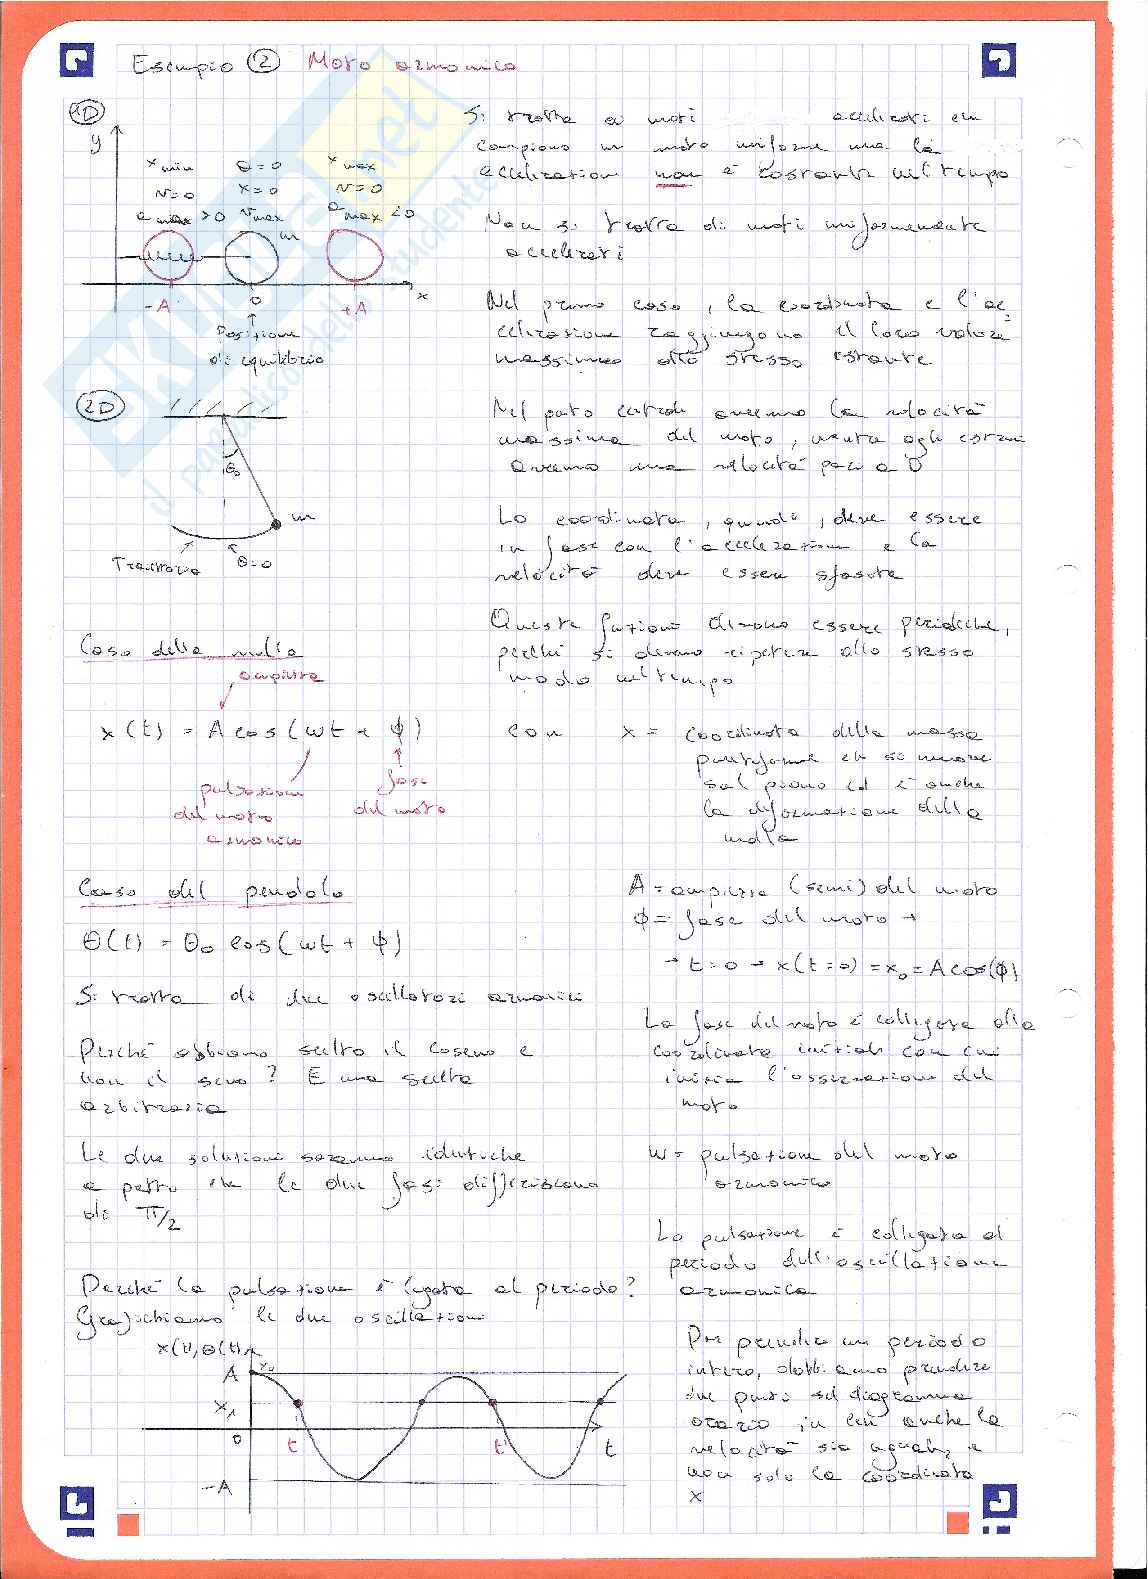 Esempio ② Moto armonico
1D
y
x min
N=0
a max >0
a=0
x=0
Nmax
x max
N=0
a max <0
m
-A
0
+A
x
Posizione
di equilibrio
Si tratta di moti accelerati che
compiono un moto uniforme ma la
accelerazione non è costante nel tempo
Non si tratta di moti uniformemente
accelerati
Nel primo caso, la coordinata e l'ac
celerazione raggiungono il loro valore
massimo allo stesso istante
2D
θ₀
m
Traiettoria
θ=0
Nel punto centrale avremo la velocità
massima del moto, mentre agli estremi
avremo una velocità pari a 0
La coordinata, quindi, deve essere
in fase con l'accelerazione e la
velocità deve essere sfasata
Queste funzioni devono essere periodiche,
perché si devono ripetere allo stesso
modo nel tempo
Caso della molla
ampiezza
x(t) = A cos(ωt + ϕ)
pulsazione
del moto
armonico
fase
del moto
con x = coordinata della massa
puntiforme che si muove
sul piano ed è anche
la deformazione della
molla
Caso del pendolo
θ(t) = θ₀ cos(ωt + ϕ)
Si tratta di due oscillatori armonici
Perché abbiamo scelto il coseno e
non il seno? È una scelta
arbitraria
Le due soluzioni saranno identiche
a patto che le due fasi differiscano
di π/2
Perché la pulsazione è legata al periodo?
Grafichiamo le due oscillazioni
A = ampiezza (semi) del moto
ϕ = fase del moto →
→ t=0 → x(t=0) = x₀ = A cos(ϕ)
La fase del moto è collegata alla
coordinata iniziale con cui
inizia l'osservazione del
moto
ω = pulsazione del moto
armonico
La pulsazione è collegata al
periodo dell'oscillazione
armonica
Per prendere un periodo
intero, dobbiamo prendere
due punti sul diagramma
orario in cui anche la
velocità sia uguale, e
non solo la coordinata
x
x(t), θ(t)
A
x₀
x₁
0
t
t'
t
-A